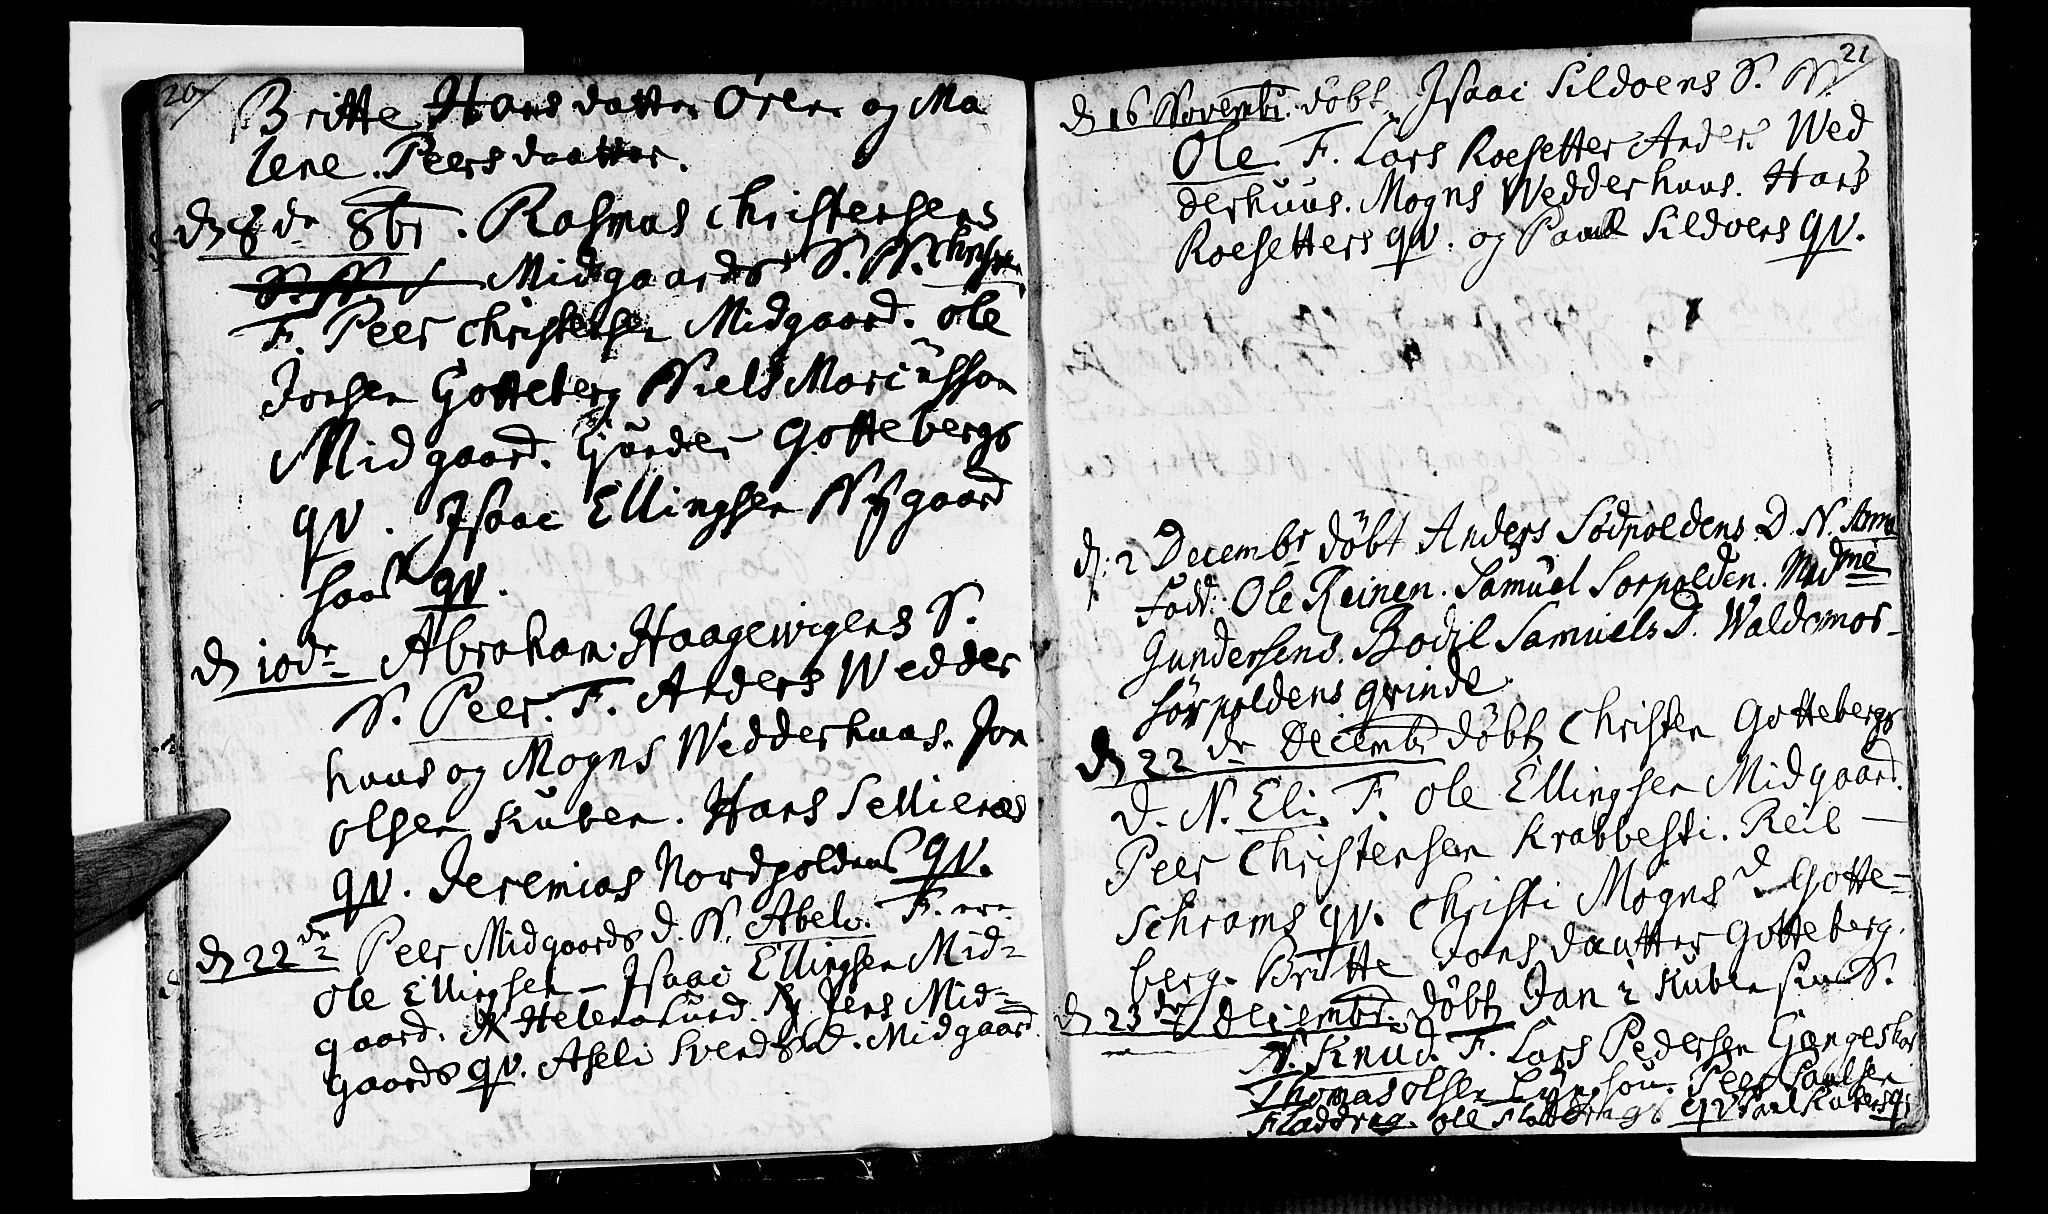 20
Britte Hans datter Ører og Ma
lene Peers daatter.
d 8de 8br. Rasmus Christensens
S. N. Midgaards S. N. Christen
F. Peer Christensen Midgaard. Ole
Jonsen Gotteberg Niels Mariusson
Midgaard. Gjurder Gottebergs
qv. Isaac Ellingsen Nÿgaard
haar qv.
d 10de Abraham Haagewigens S.
N. Peer. F. Anders Wedder
huus og Mogns Wedderhuus. Jon
Olsen Kuben. Hans Sellienæs
qv. Jeremias Nordpoldens qv.
d 22de Peer Midgaards D. N. Abelo. F. ere
Ole Ellingsen - Isaac Ellingsen Mid-
gaard. Helena Lund. Jens Mid-
gaards qv. Aseli Svends D. Midgaard.
21
d 16 Novembr. döbt Isaac Sildoens S. N
Ole. F. Lars Roesetter Anders Wed
derhuus. Mogns Wedderhuus. Hans
Roesetters qv. og Paul Sildoens qv.
d. 2 Decembr döbt Anders Sødpoldens D. N. Anne
Fadd: Ole Reinen. Samuel Sørpolden. Madme
Gundersens. Bodil Samuels D. Waldemor-
Sørpoldens qvinde.
d 22de Decembr döbt Christen Gottebergs
D. N. Eli. F. Ole Ellingsen Midgaard.
Peer Christensen Krabbesti. Reil -
Schrams qv. Christi Mogns D Gotte-
berg. Britte Jons dautter Gotteberg.
d 23de Decembr. döbt Jan i Kuben sin S.
N. Knud. F. Lars Pedersen Gangeskar
Thomas Olsen Lÿnghou. Peer Paulsen
Fladdrag. Ole Fladdrags qv Paul Kubens q.